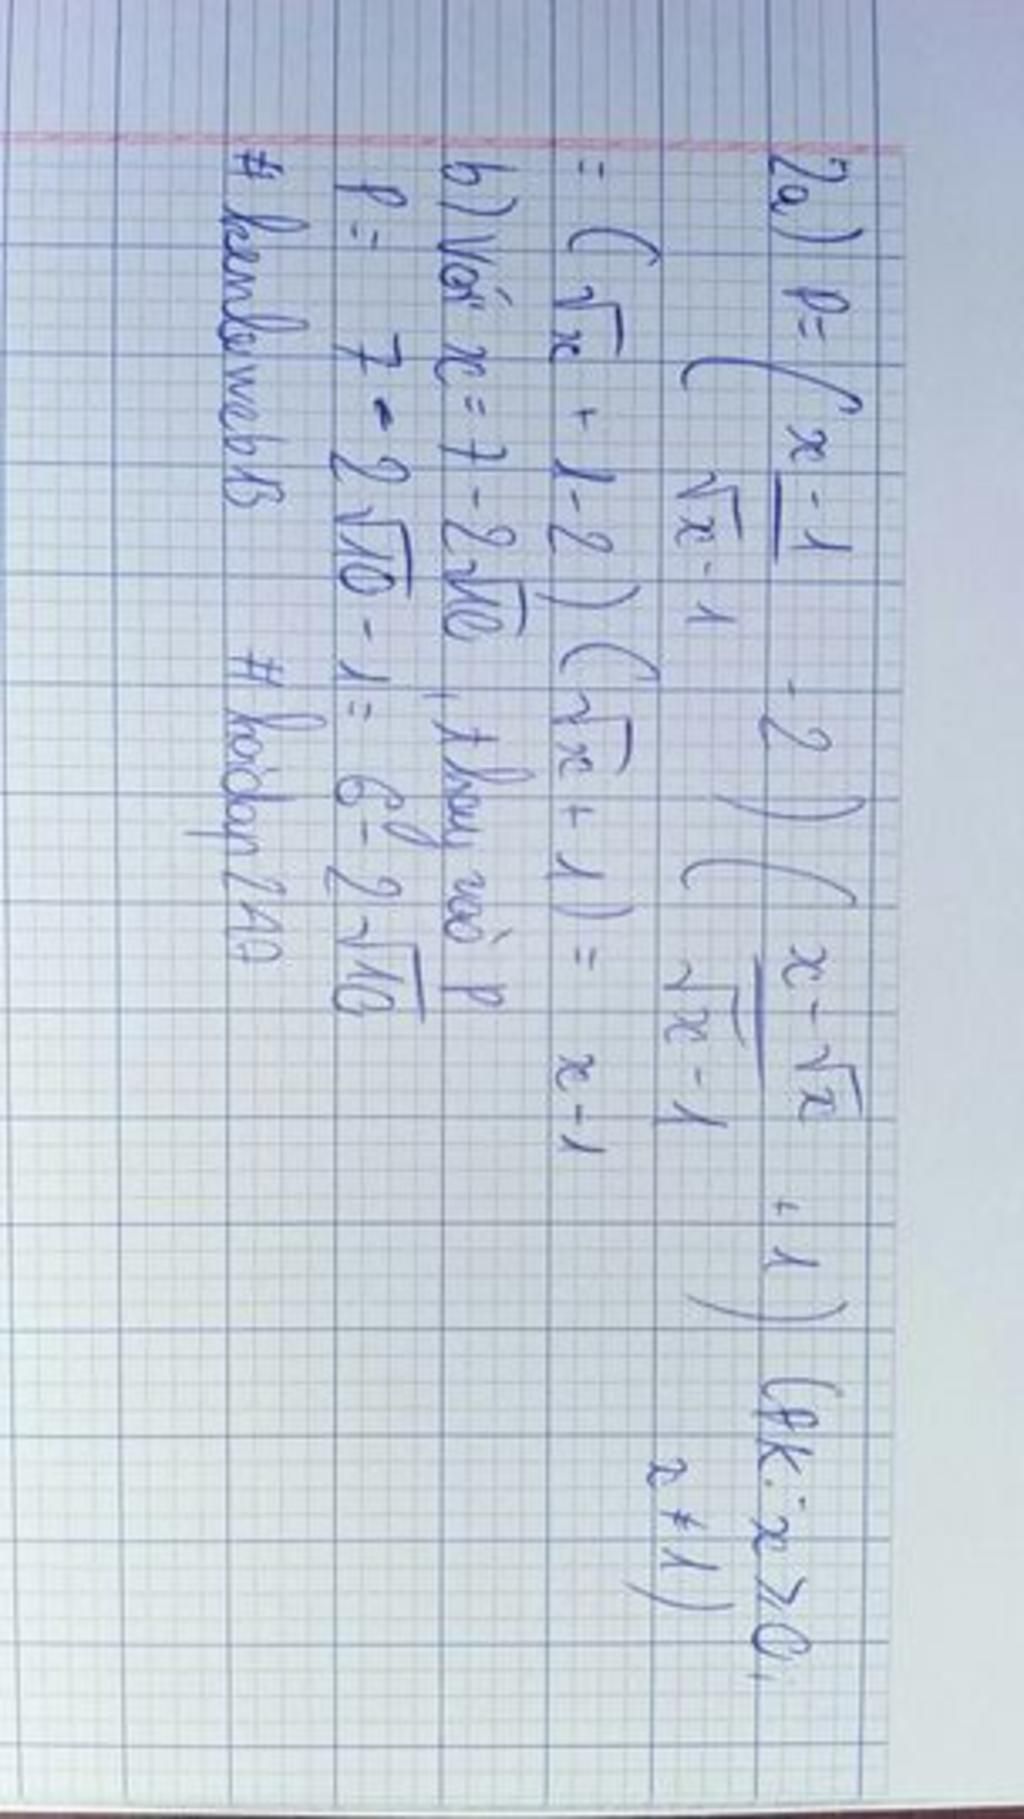 2a) P = ( x - 1 / √x - 1 - 2 ) ( x - √x / √x - 1 + 1 ) (ĐK: x ≥ 0,
x ≠ 1)
= ( √x + 1 - 2 ) ( √x + 1 ) = x - 1
b) Với x = 7 - 2√10, thay vào P
P = 7 - 2√10 - 1 = 6 - 2√10
# hoidap247